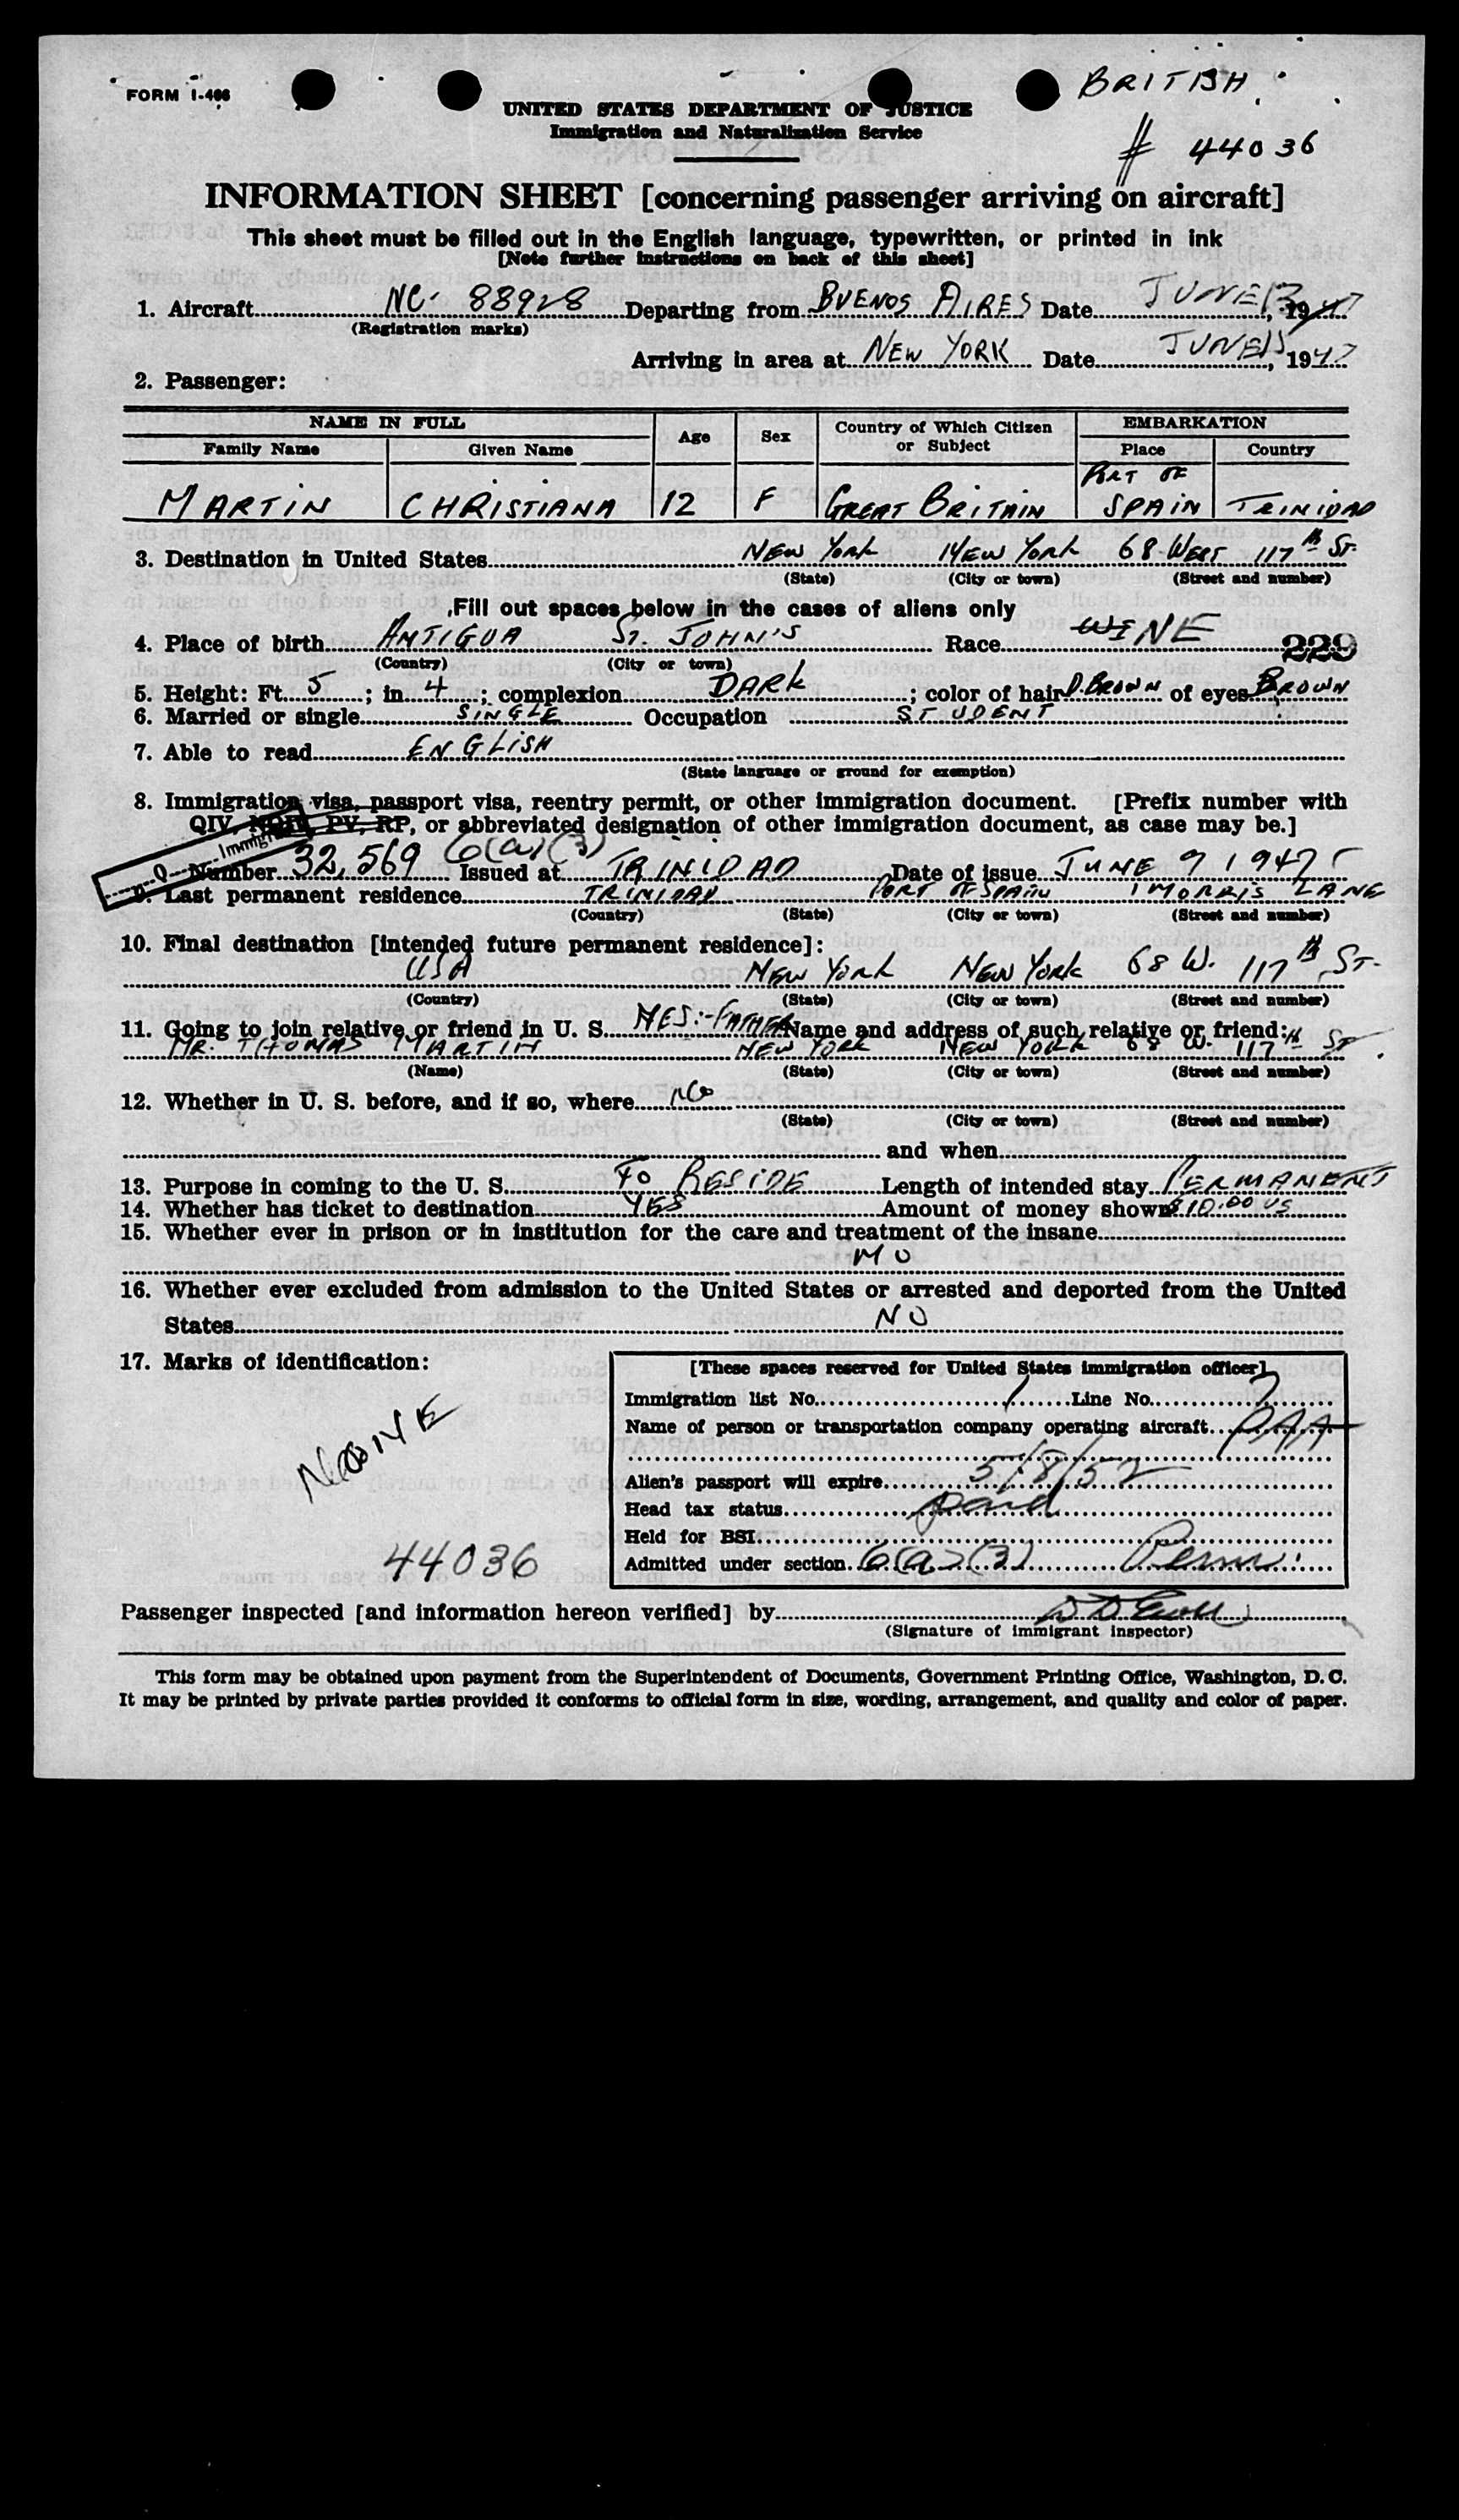 BRITISH
FORM I-466
UNITED STATES DEPARTMENT OF JUSTICE
Immigration and Naturalization Service
# 44036
INFORMATION SHEET [concerning passenger arriving on aircraft]
This sheet must be filled out in the English language, typewritten, or printed in ink
[Note further instructions on back of this sheet]
1. Aircraft NC- 88928 Departing from BUENOS AIRES Date JUNE 13, 1947
(Registration marks)
Arriving in area at NEW YORK Date JUNE 15, 1947
2. Passenger:
NAME IN FULL Age Sex Country of Which Citizen or Subject EMBARKATION
Family Name Given Name Place Country
MARTIN CHRISTIANA 12 F GREAT BRITAIN PORT OF SPAIN TRINIDAD
3. Destination in United States NEW YORK NEW YORK 68 WEST 117th ST.
(State) (City or town) (Street and number)
Fill out spaces below in the cases of aliens only
4. Place of birth ANTIGUA ST. JOHN'S Race WINE 229
(Country) (City or town)
5. Height: Ft. 5; in. 4; complexion DARK; color of hair D. BROWN of eyes BROWN
6. Married or single SINGLE Occupation STUDENT
7. Able to read ENGLISH
(State language or ground for exemption)
8. Immigration visa, passport visa, reentry permit, or other immigration document. [Prefix number with
QIV, NQIV, PV, RP, or abbreviated designation of other immigration document, as case may be.]
Q Immigr
Number 32,569 6(a)(3) Issued at TRINIDAD Date of issue JUNE 9 1947
9. Last permanent residence TRINIDAD PORT OF SPAIN 1 MORRIS LANE
(Country) (State) (City or town) (Street and number)
10. Final destination [intended future permanent residence]:
USA NEW YORK NEW YORK 68 W. 117th ST.
(Country) (State) (City or town) (Street and number)
11. Going to join relative or friend in U. S. YES:-FATHER Name and address of such relative or friend:
MR. THOMAS MARTIN NEW YORK NEW YORK 68 W. 117th ST.
(Name) (State) (City or town) (Street and number)
12. Whether in U. S. before, and if so, where NO
(State) (City or town) (Street and number)
and when
13. Purpose in coming to the U. S. TO RESIDE Length of intended stay PERMANENT
14. Whether has ticket to destination YES Amount of money shown $10.00 US
15. Whether ever in prison or in institution for the care and treatment of the insane
NO
16. Whether ever excluded from admission to the United States or arrested and deported from the United
States NO
17. Marks of identification:
NONE
44036
[These spaces reserved for United States immigration officer]
Immigration list No. 1 Line No. 7
Name of person or transportation company operating aircraft PAA
Alien's passport will expire 5/8/52
Head tax status paid
Held for BSI
Admitted under section 6(a)(3) Perm.
Passenger inspected [and information hereon verified] by
(Signature of immigrant inspector)
This form may be obtained upon payment from the Superintendent of Documents, Government Printing Office, Washington, D. C.
It may be printed by private parties provided it conforms to official form in size, wording, arrangement, and quality and color of paper.